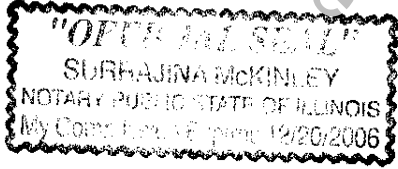 "OFFICIAL SEAL"
SURRAJINA McKINLEY
NOTARY PUBLIC STATE OF ILLINOIS
My Commission Expires 12/20/2006